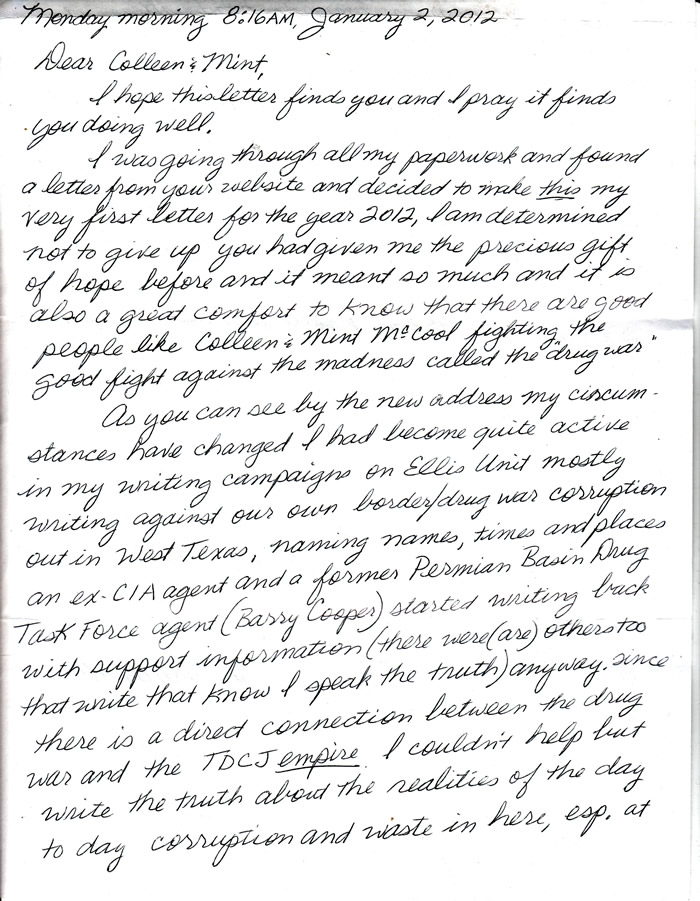 Monday morning 8:16AM, January 2, 2012
Dear Colleen & Mint,
I hope this letter finds you and I pray it finds
you doing well.
I was going through all my paperwork and found
a letter from your website and decided to make this my
very first letter for the year 2012, I am determined
not to give up you had given me the precious gift
of hope before and it meant so much and it is
also a great comfort to know that there are good
people like Colleen & Mint McCool fighting the
good fight against the madness called the "drug war"
As you can see by the new address my circum-
stances have changed I had become quite active
in my writing campaigns on Ellis Unit mostly
writing against our own border/drug war corruption
out in West Texas, naming names, times and places
an ex-CIA agent and a former Permian Basin Drug
Task Force agent (Barry Cooper) started writing back
with support information (there were (are) others too
that write that know I speak the truth) anyway. since
there is a direct connection between the drug
war and the TDCJ empire I couldn't help but
write the truth about the realities of the day
to day corruption and waste in here, esp. at